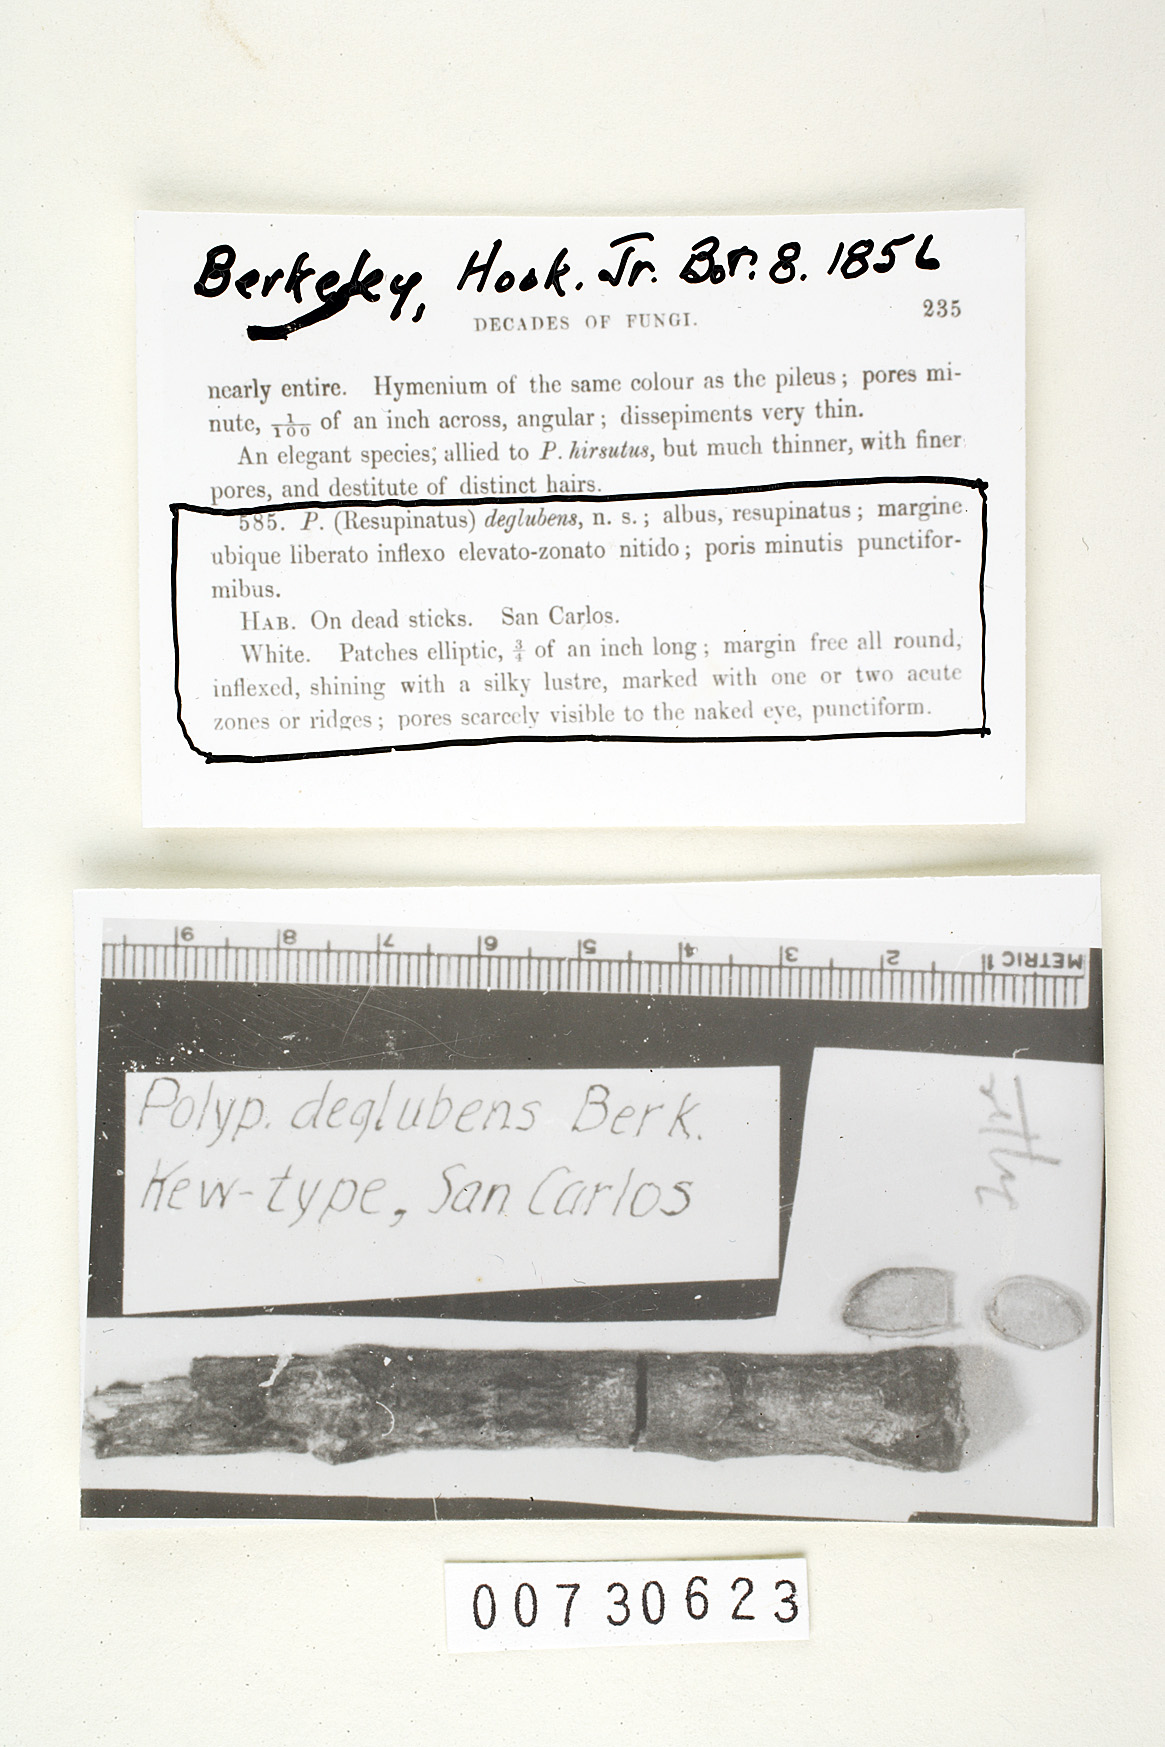 Berkeley, Hook. Jr. Bot. 8. 1856
DECADES OF FUNGI.
235
nearly entire. Hymenium of the same colour as the pileus; pores mi-
nute, 1/100 of an inch across, angular; dissepiments very thin.
An elegant species, allied to P. hirsutus, but much thinner, with finer
pores, and destitute of distinct hairs.
585. P. (Resupinatus) deglubens, n. s.; albus, resupinatus; margine
ubique liberato inflexo elevato-zonato nitido; poris minutis punctifor-
mibus.
HAB. On dead sticks. San Carlos.
White. Patches elliptic, ¾ of an inch long; margin free all round,
inflexed, shining with a silky lustre, marked with one or two acute
zones or ridges; pores scarcely visible to the naked eye, punctiform.
9 8 7 6 5 4 3 2 1 METRIC
Polyp. deglubens Berk.
Kew-type, San Carlos
00730623